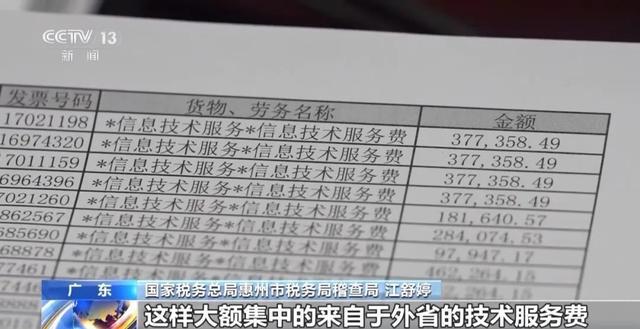 CCTV 13
新闻
发票号码 货物、劳务名称 金额
17021198 *信息技术服务*信息技术服务费 377,358.49
16974320 *信息技术服务*信息技术服务费 377,358.49
17011159 *信息技术服务*信息技术服务费 377,358.49
6964396 *信息技术服务*信息技术服务费 377,358.49
7021260 *信息技术服务*信息技术服务费 181,640.57
862567 *信息技术服务*信息技术服务费 284,074.53
685690 *信息技术服务*信息技术服务费 97,947.17
68878 *信息技术服务*信息技术服务费 462,264.15
77461 264.15
广东 国家税务总局惠州市税务局稽查局 江舒婷
这样大额集中的来自于外省的技术服务费